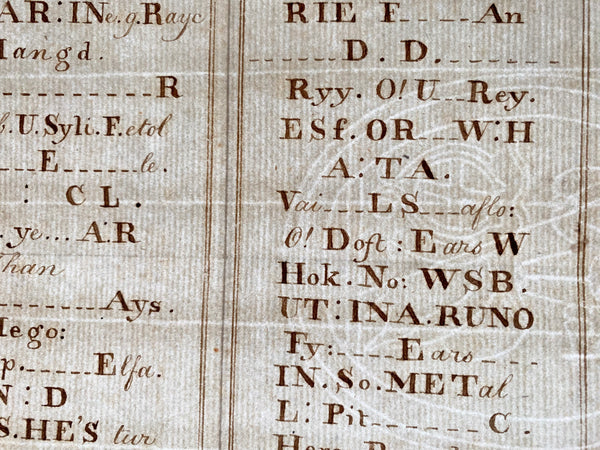 AR: INe.g.Rayc
Mangd.
----------R
b.U.Syli.F.etol
----E------le.
: C L.
. ye... A:R
Than
---------Ays.
Mego:
p.----Elfa.
N : D
S.HE'S tur
RIE F____An
------D. D.--------
Ryy. O! U__Rey.
ESf. OR___W:H
A: TA.
Vai____LS___aflo:
O! Doft : Ears W
Hok. No: WSB.
UT: INA.RUNO
Fy:-----Ears_ _ _
IN. So. METal _
L: Pit_____ C .